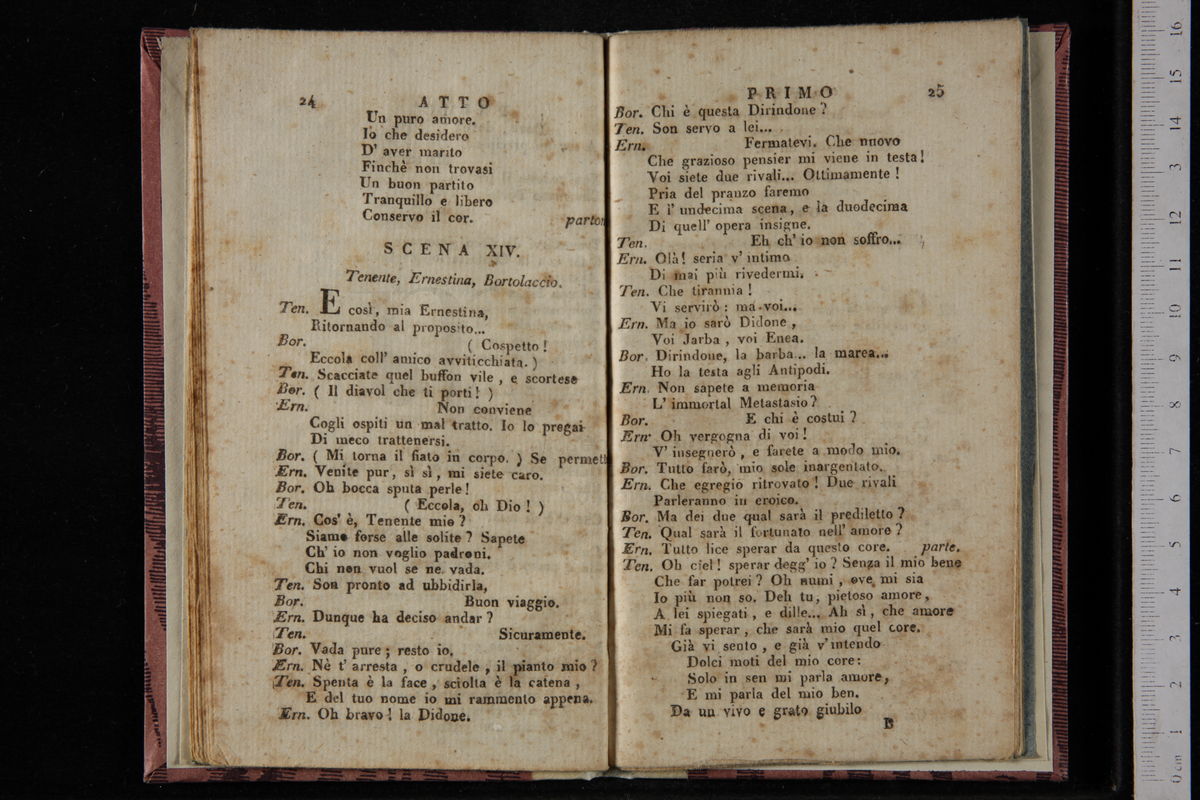 24 ATTO
Un puro amore.
Io che desidero
D' aver marito
Finchè non trovasi
Un buon partito
Tranquillo e libero
Conservo il cor. parton
SCENA XIV.
Tenente, Ernestina, Bortolaccio.
Ten. E così, mia Ernestina,
Ritornando al proposito...
Bor. ( Cospetto !
Eccola coll' amico avviticchiata. )
Ten. Scacciate quel buffon vile , e scortese
Bor. ( Il diavol che ti porti ! )
Ern. Non conviene
Cogli ospiti un mal tratto. Io lo pregai
Di meco trattenersi.
Bor. ( Mi torna il fiato in corpo. ) Se permett
Ern. Venite pur, sì sì, mi siete caro.
Bor. Oh bocca sputa perle !
Ten. ( Eccola, oh Dio ! )
Ern. Cos' è, Tenente mio ?
Siamo forse alle solite ? Sapete
Ch' io non voglio padroni.
Chi non vuol se ne vada.
Ten. Son pronto ad ubbidirla,
Bor. Buon viaggio.
Ern. Dunque ha deciso andar ?
Ten. Sicuramente.
Bor. Vada pure ; resto io.
Ern. Nè t' arresta , o crudele , il pianto mio ?
Ten. Spenta è la face , sciolta è la catena ,
E del tuo nome io mi rammento appena.
Ern. Oh bravo ! la Didone.
PRIMO 25
Bor. Chi è questa Dirindone ?
Ten. Son servo a lei...
Ern. Fermatevi. Che nuovo
Che grazioso pensier mi viene in testa !
Voi siete due rivali... Ottimamente !
Pria del pranzo faremo
E l' undecima scena , e la duodecima
Di quell' opera insigne.
Ten. Eh ch' io non soffro...
Ern. Olà ! seria v' intimo
Di mai più rivedermi.
Ten. Che tirannia !
Vi servirò : ma voi...
Ern. Ma io sarò Didone ,
Voi Jarba , voi Enea.
Bor. Dirindone, la barba... la marea...
Ho la testa agli Antipodi.
Ern. Non sapete a memoria
L' immortal Metastasio ?
Bor. E chi è costui ?
Ern. Oh vergogna di voi !
V' insegnerò , e farete a modo mio.
Bor. Tutto farò, mio sole inargentato.
Ern. Che egregio ritrovato ! Due rivali
Parleranno in eroico.
Bor. Ma dei due qual sarà il prediletto ?
Ten. Qual sarà il fortunato nell' amore ?
Ern. Tutto lice sperar da questo core. parte.
Ten. Oh ciel ! sperar degg' io ? Senza il mio bene
Che far potrei ? Oh numi , ove mi sia
Io più non so. Deh tu, pietoso amore,
A lei spiegati , e dille... Ah sì , che amore
Mi fa sperar , che sarà mio quel core.
Già vi sento , e già v' intendo
Dolci moti del mio core :
Solo in sen mi parla amore,
E mi parla del mio ben.
Da un vivo e grato giubilo
B
0 cm 1 2 3 4 5 6 7 8 9 10 11 12 13 14 15 16